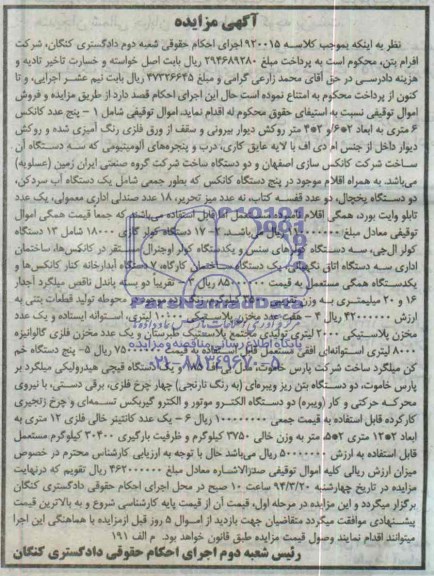 آگهی مزایده
نظر به اینکه بموجب کلاسه ۹۲۰۰۱۵ اجرای احکام حقوقی شعبه دوم دادگستری کنگان، شرکت
افرام بتن، محکوم است به پرداخت مبلغ ۲۹۴۶۸۹۲۸۰ ریال بابت اصل خواسته و خسارت تاخیر تادیه و
هزینه دادرسی در حق آقای محمد زارعی گرامی و مبلغ ۴۷۳۲۶۶۴۵ ریال بابت نیم عشر اجرایی، و تا
کنون از پرداخت محکوم به امتناع نموده است حال این اجرای احکام قصد دارد از طریق مزایده و فروش
اموال توقیفی نسبت به استیفای حقوق محکوم له اقدام نماید، اموال توقیفی شامل ۱ - پنج عدد کانکس
۶ متری به ابعاد ۲*۶ و ۴*۲ متر روکش دیوار بیرونی و سقف از ورق فلزی رنگ آمیزی شده و روکش
دیوار داخل از جنس ام دی اف با لایه عایق کاری، درب و پنجره‌های آلومینیومی که سه دستگاه آن
ساخت شرکت کانکس سازی اصفهان و دو دستگاه ساخت شرکت گروه صنعتی ایران زمین (عسلویه)
می‌باشد. به همراه اقلام موجود در پنج دستگاه کانکس که بطور جمعی شامل یک دستگاه آب سردکن،
دو دستگاه یخچال، دو عدد قفسه کتاب، نه عدد میز تحریر، ۱۸ عدد صندلی اداری معمولی، یک عدد
تابلو وایت بورد، همگی اقلام مستعمل قابل استفاده می‌باشد که جمعا قیمت همگی اموال
توقیفی معادل مبلغ ریال می‌باشد. ۲- ۱۷ دستگاه کولر گازی ۱۸۰۰۰ شامل ۱۳ دستگاه
کولر ال‌جی، سه دستگاه کولرهای سنس و یکدستگاه کولر اوجنرال مستقر در کانکس‌ها، ساختمان
اداری سه دستگاه اتاق نگهبانی یک دستگاه ساختمان کارگاه، ۷ دستگاه آبدارخانه کنار کانکس‌ها و
یکدستگاه همگی مستعمل به قیمت ریال ۳- تقریبا دو بسته باندل ناقص میلگرد آجدار
۱۶ و ۲۰ میلیمتری به وزن تقریبی کیلوگرم موجود در محوطه تولید قطعات بتنی به
ارزش ۴۲۰۰۰۰۰۰ ریال ۴ - هفت عدد مخزن پلاستیکی ۱۰۰۰۰ لیتری، استوانه ایستاده و یک عدد
مخزن پلاستیکی ۲۰۰۰ لیتری تولیدی مجتمع پلاستیک طبرستان و یک عدد مخزن فلزی گالوانیزه
۸۰۰۰ لیتری استوانه‌ای افقی مستعمل قابل استفاده به قیمت ریال ۵- پنج دستگاه خم
کن میلگرد ساخت شرکت پارس خاموت، و یک دستگاه قیچی هیدرولیکی میلگرد بر
پارس خاموت، دو دستگاه بتن ریز ویبره‌ای (به رنگ نارنجی) چهار چرخ فلزی، برقی دستی، با نیروی
محرکه حرکتی و کار (ویبره) دو دستگاه الکترو موتور و الکترو گیربکس تسمه‌ای و چرخ زنجیری
کارکرده قابل استفاده به قیمت جمعی ۱۰۰۰۰۰۰۰۰ ریال ۶ - یک عدد کانتینر خالی فلزی ۱۲ متری به
ابعاد ۱۲*۲ متری ۲*۵، متر به وزن خالی ۳۷۵۰ کیلوگرم و ظرفیت بارگیری ۳۰۴۰۰ کیلوگرم مستعمل
قابل استفاده به ارزش ۵۰۰۰۰۰۰۰ ریال می‌باشد حال با توجه به ارزیابی کارشناس محترم در خصوص
میزان ارزش ریالی کلیه اموال توقیفی صدرالاشاره معادل مبلغ ۴۶۲۰۰۰۰۰۰ ریال تقویم که درنهایت
مزایده در تاریخ چهارشنبه ۹۴/۳/۲۰ ساعت ۱۰ صبح در محل اجرای احکام حقوقی دادگستری کنگان
برگزار میگردد و این مزایده در مرحله اول، قیمت آن از قیمت پایه کارشناسی شروع و به بالاترین قیمت
پیشنهادی موافقت میگردد متقاضیان جهت بازدید از اموال ۵ روز قبل ازمزایده با هماهنگی این اجرا
میتوانند اقدام نمایند وصول قیمت مزایده طبق قانون خواهد بود. م الف ۱۹۱
رئیس شعبه دوم اجرای احکام حقوقی دادگستری کنگان
ParsNamadData
پایگاه اطلاع رسانی مناقصه و مزایده
۰۲۱-۸۸۳۴۹۶۷۰-۵